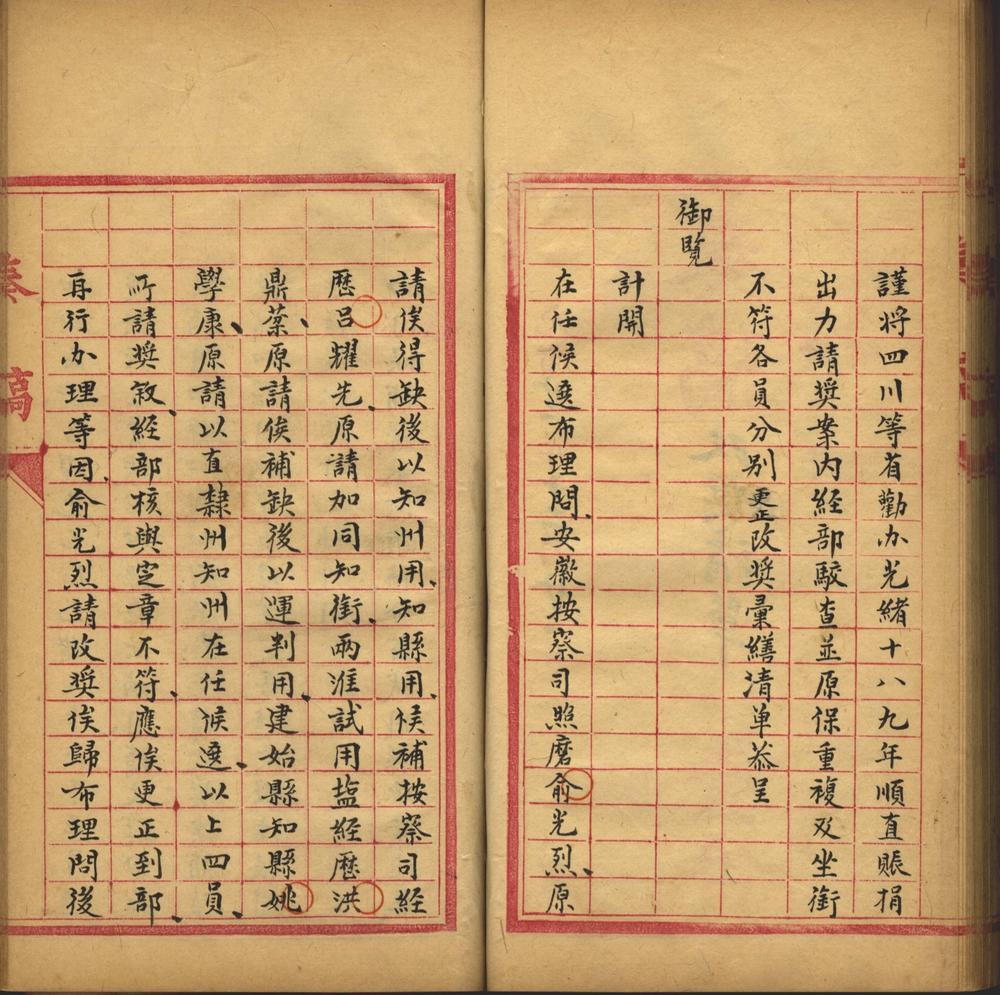 謹将四川等省勸办光緒十八九年順直賑捐
出力請奬案內經部駮查並原保重複及坐銜
不符各員分别更正改奬彙繕清单恭呈
御覽
計開
在任候選布理問、安徽按察司照磨俞光烈、原
請俟得缺後以知州用、知縣用、候補按察司經
歷呂耀先、原請加同知銜、兩淮試用塩經歷洪
鼎棻、原請俟補缺後以運判用、建始縣知縣姚
學康、原請以直隸州知州在任候選、以上四員、
所請奬敘、經部核與定章不符、應俟更正到部、
再行办理等因、俞光烈請改奬俟歸布理問後
奏稿